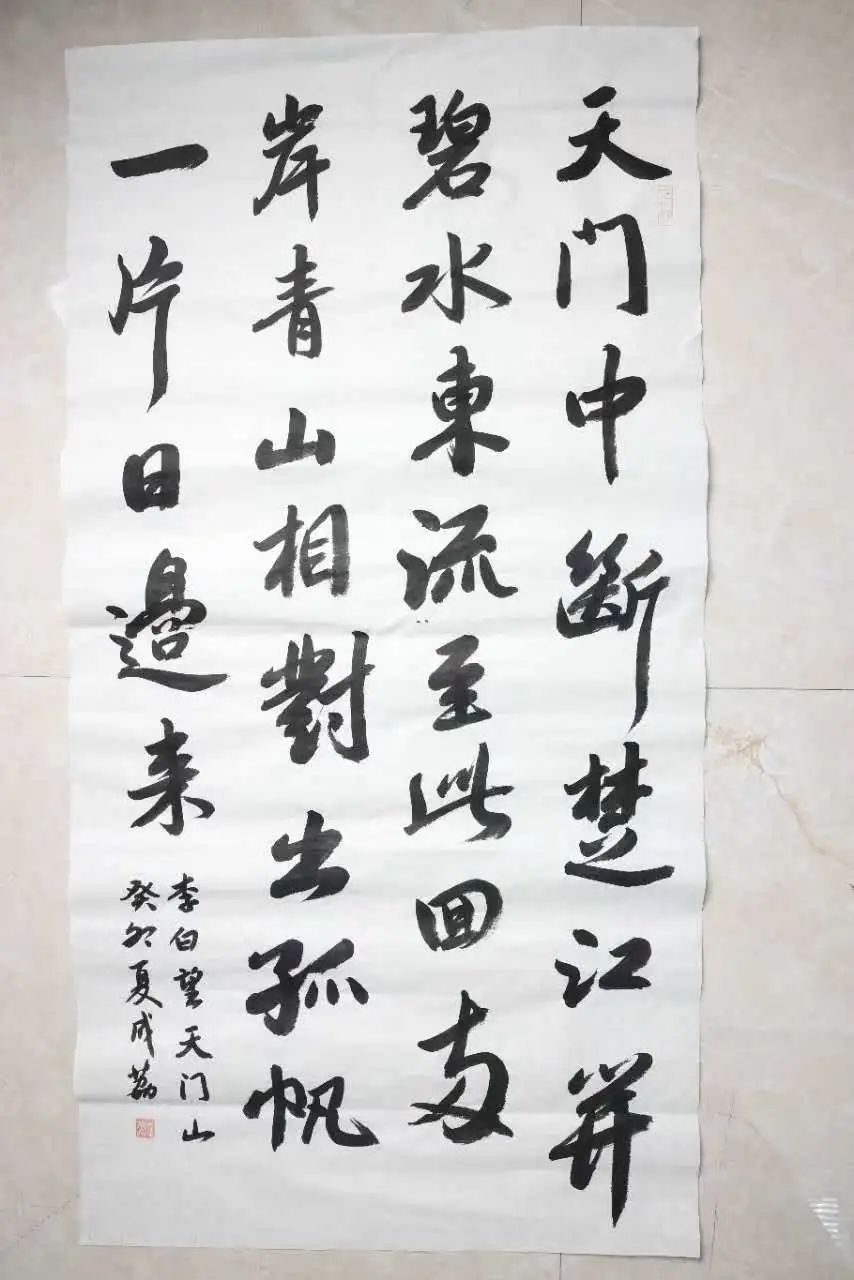 天门中斷楚江開
碧水東流至此回兩
岸青山相對出孤帆
一片日邊来
李白望天门山
癸卯夏成荔